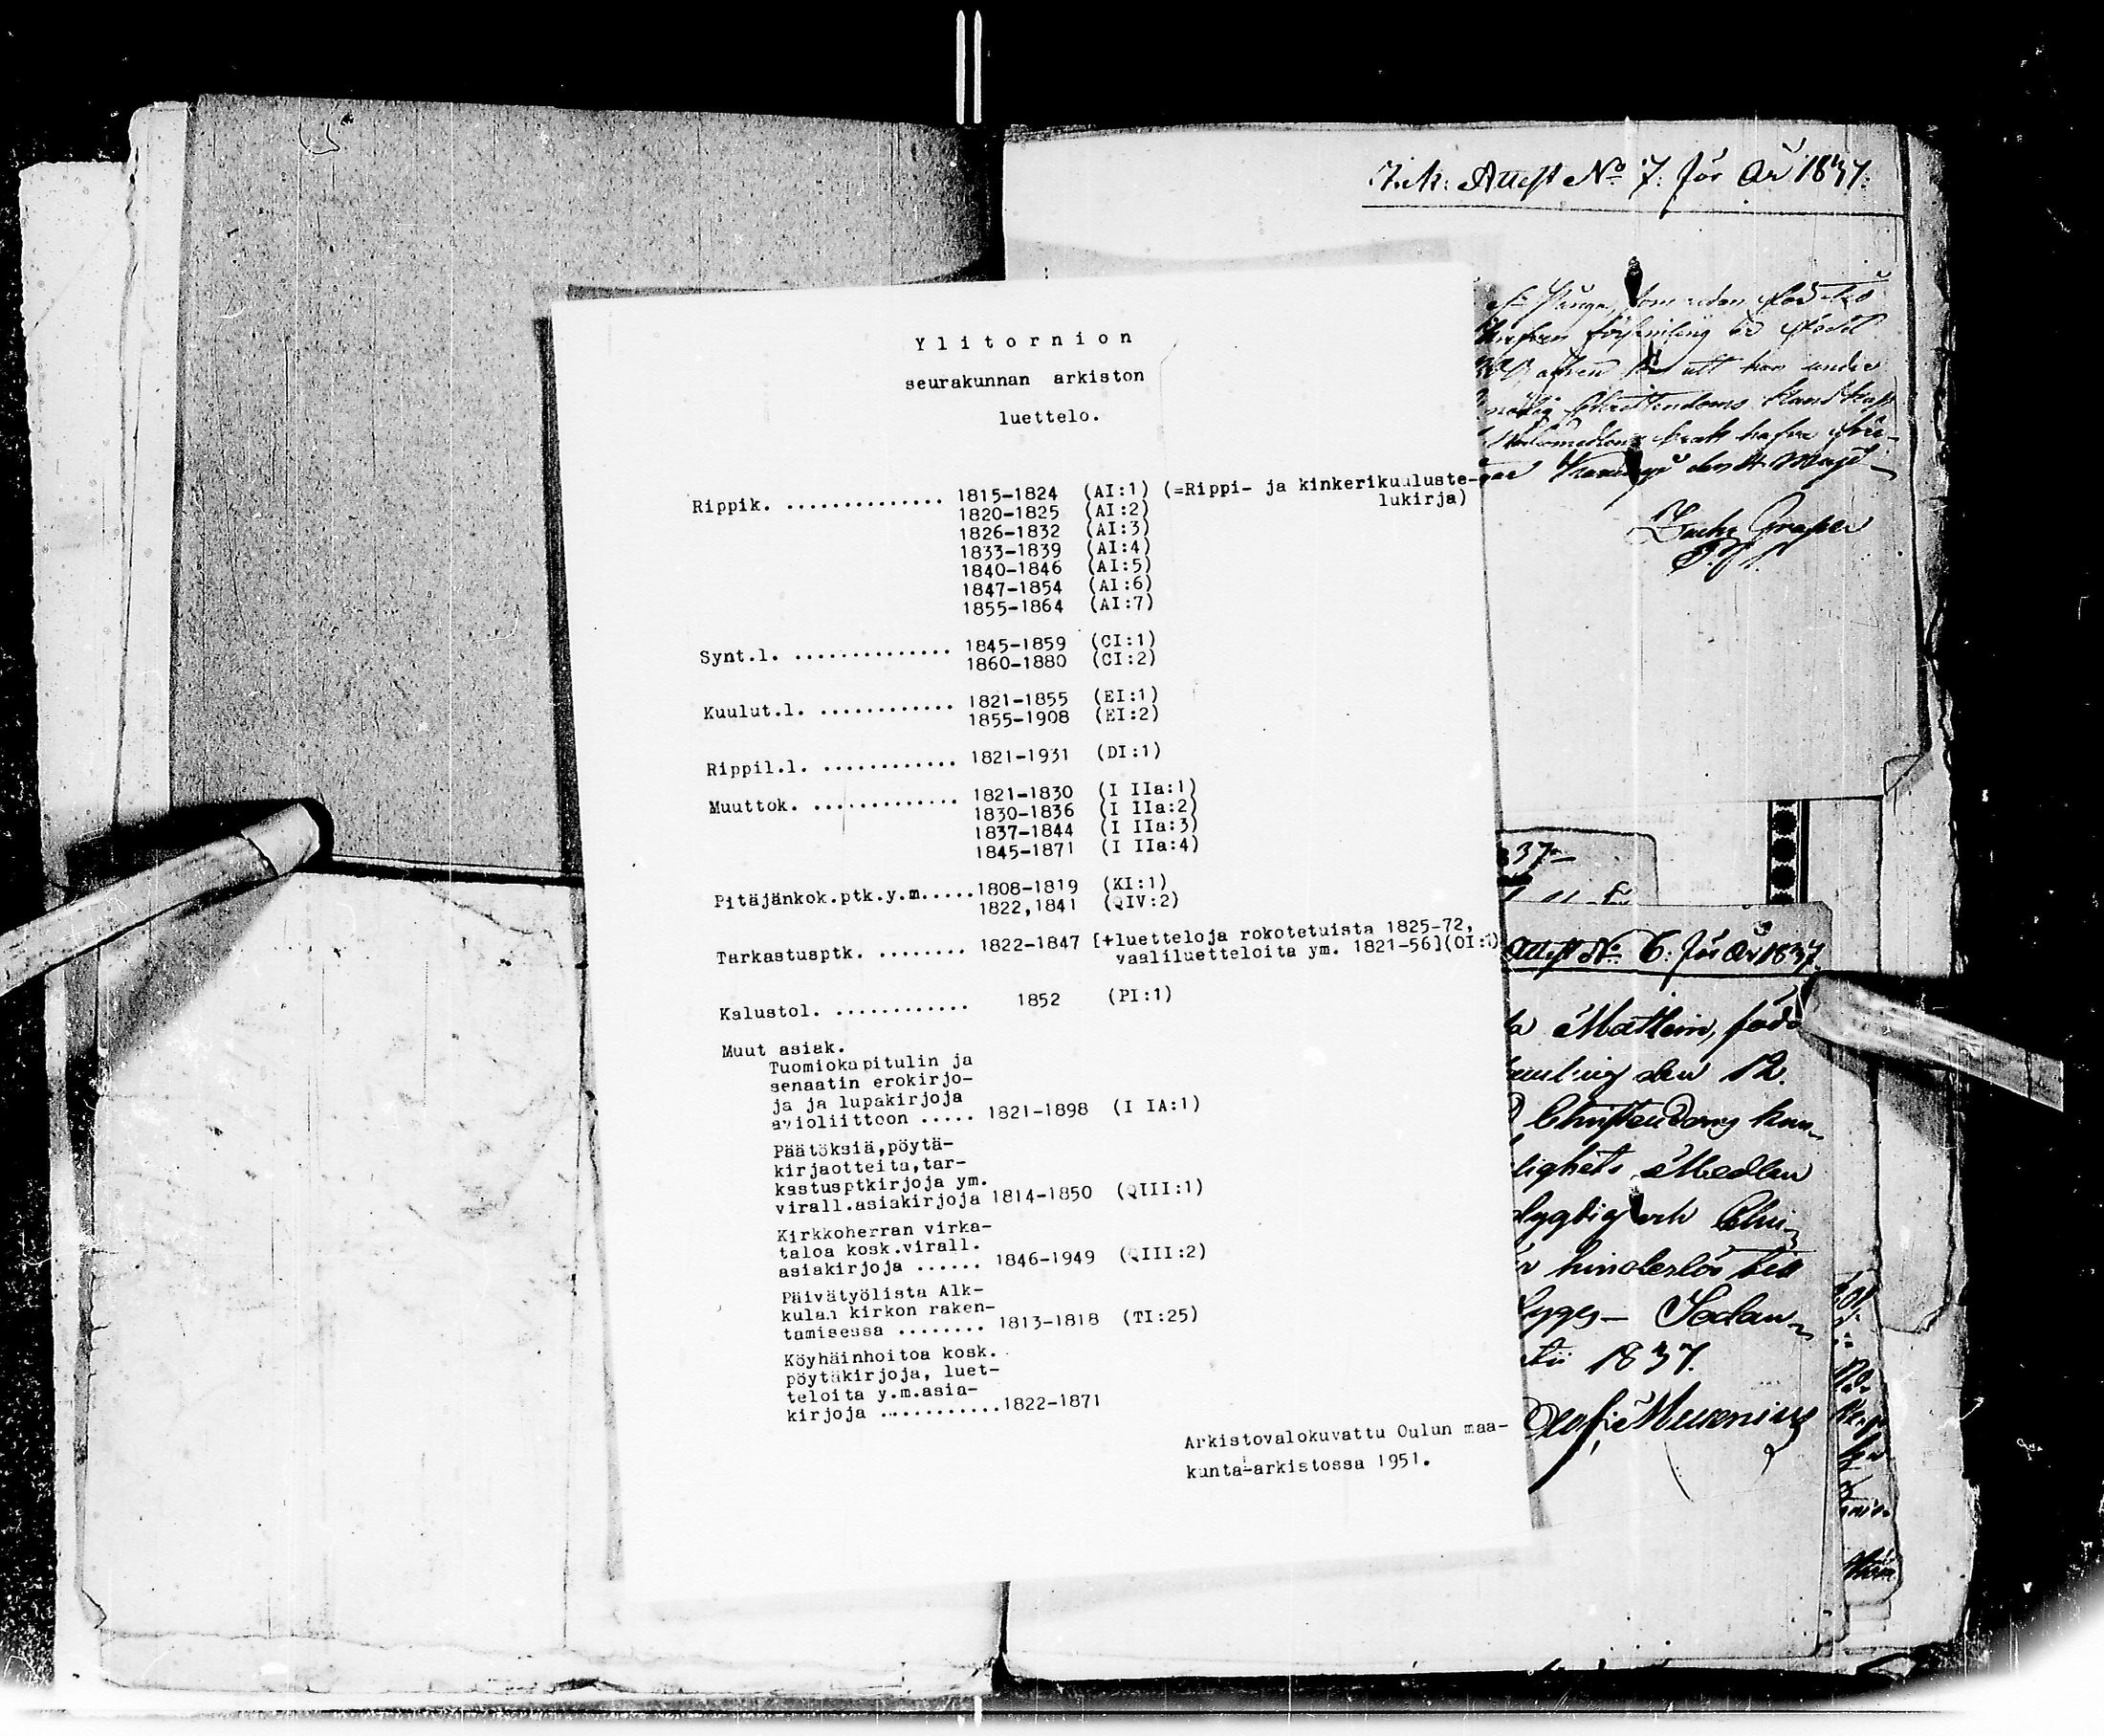 Attest No 7. för År 1837.
Ylitornion
seurakunnan arkiston
luettelo.
Rippik. .............. 1815-1824 (AI:1) (=Rippi- ja kinkerikuuluste-
lukirja)
1820-1825 (AI:2)
1826-1832 (AI:3)
1833-1839 (AI:4)
1840-1846 (AI:5)
1847-1854 (AI:6)
1855-1864 (AI:7)
Synt.l. .............. 1845-1859 (CI:1)
1860-1880 (CI:2)
Kuulut.l. ............ 1821-1855 (EI:1)
1855-1908 (EI:2)
Rippil.l. ............ 1821-1931 (DI:1)
Muuttok. ............. 1821-1830 (I IIa:1)
1830-1836 (I IIa:2)
1837-1844 (I IIa:3)
1845-1871 (I IIa:4)
Pitäjänkok.ptk.y.m.....1808-1819 (KI:1)
1822,1841 (QIV:2)
Tarkastusptk. ........ 1822-1847 [+luetteloja rokotetuista 1825-72,
vaaliluetteloita ym. 1821-56](OI:1)
Kalustol. ............ 1852 (PI:1)
Muut asiak.
Tuomiokapitulin ja
senaatin erokirjo-
ja ja lupakirjoja
avioliittoon ..... 1821-1898 (I IA:1)
Päätöksiä,pöytä-
kirjaotteita,tar-
kastusptkirjoja ym.
virall.asiakirjoja 1814-1850 (QIII:1)
Kirkkoherran virka-
taloa kosk.virall.
asiakirjoja ...... 1846-1949 (QIII:2)
Päivätyölista Alk-
kulan kirkon raken-
tamisessa ........ 1813-1818 (TI:25)
Köyhäinhoitoa kosk.
pöytäkirjoja, luet-
teloita y.m.asia-
kirjoja ...........1822-1871
Arkistovalokuvattu Oulun maa-
kunta-arkistossa 1951.
att han under
Christendoms kundskap
37
Attest No 6. för År 1837.
Mattlein, född
den 12.
Christendoms kun-
lighets Medlen
och Chri-
hinderlös till
lygges - Sodan-
1837.